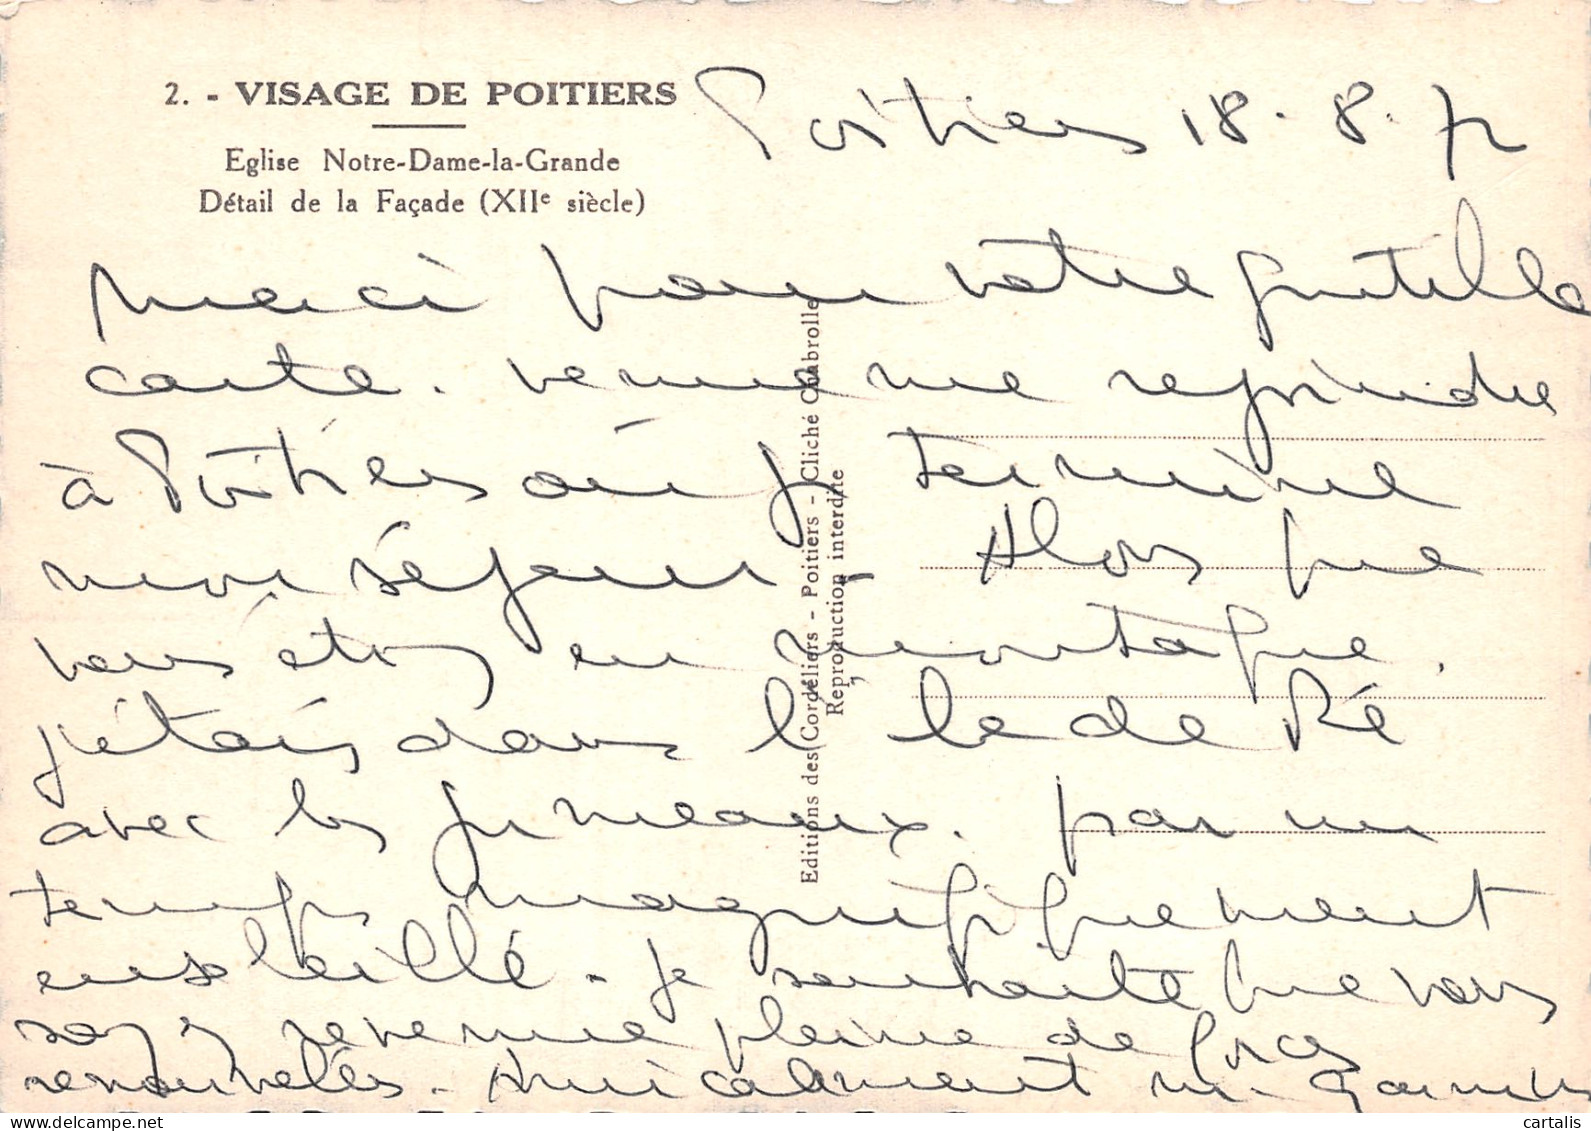 2. - VISAGE DE POITIERS
Eglise Notre-Dame-la-Grande
Détail de la Façade (XIIe siècle)
Poitiers 18.8.72
Merci pour votre gentille
carte. venue me rejoindre
à Poitiers où je termine
mon séjour - Alors que
vous étiez en montagne,
j'étais dans l'île de Ré
avec les jumeaux. par un
temps magnifiquement
ensoleillé - je souhaite que vous
soyez revenue pleine de forces
renouvelées. Amicalement M.
Editions des Cordeliers - Poitiers - Cliché Chabrolle
Reproduction interdite
cartalis
delcampe.net